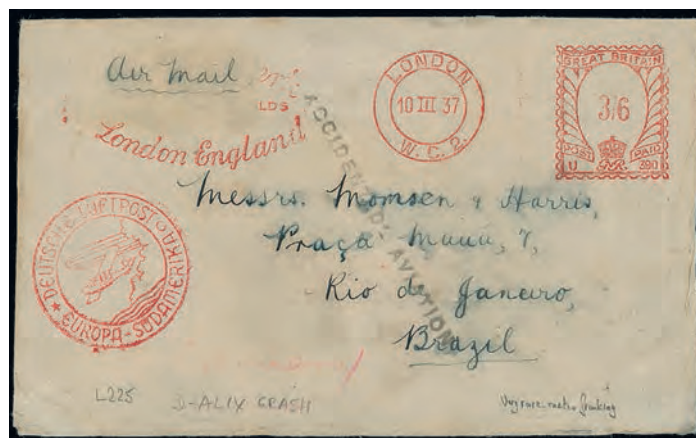 Air Mail
LDS
London England
LONDON
10 III 37
W.C.2.
GREAT BRITAIN
3/6
POST PAID
GR
U 390
ACCIDENT D'AVIATION
DEUTSCHE LUFTPOST
EUROPA-SÜDAMERIKA
Messrs. Momsen & Harris,
Praça Mauá, 7,
Rio de Janeiro,
Brazil
L225
D-ALIX CRASH
Very rare meter franking